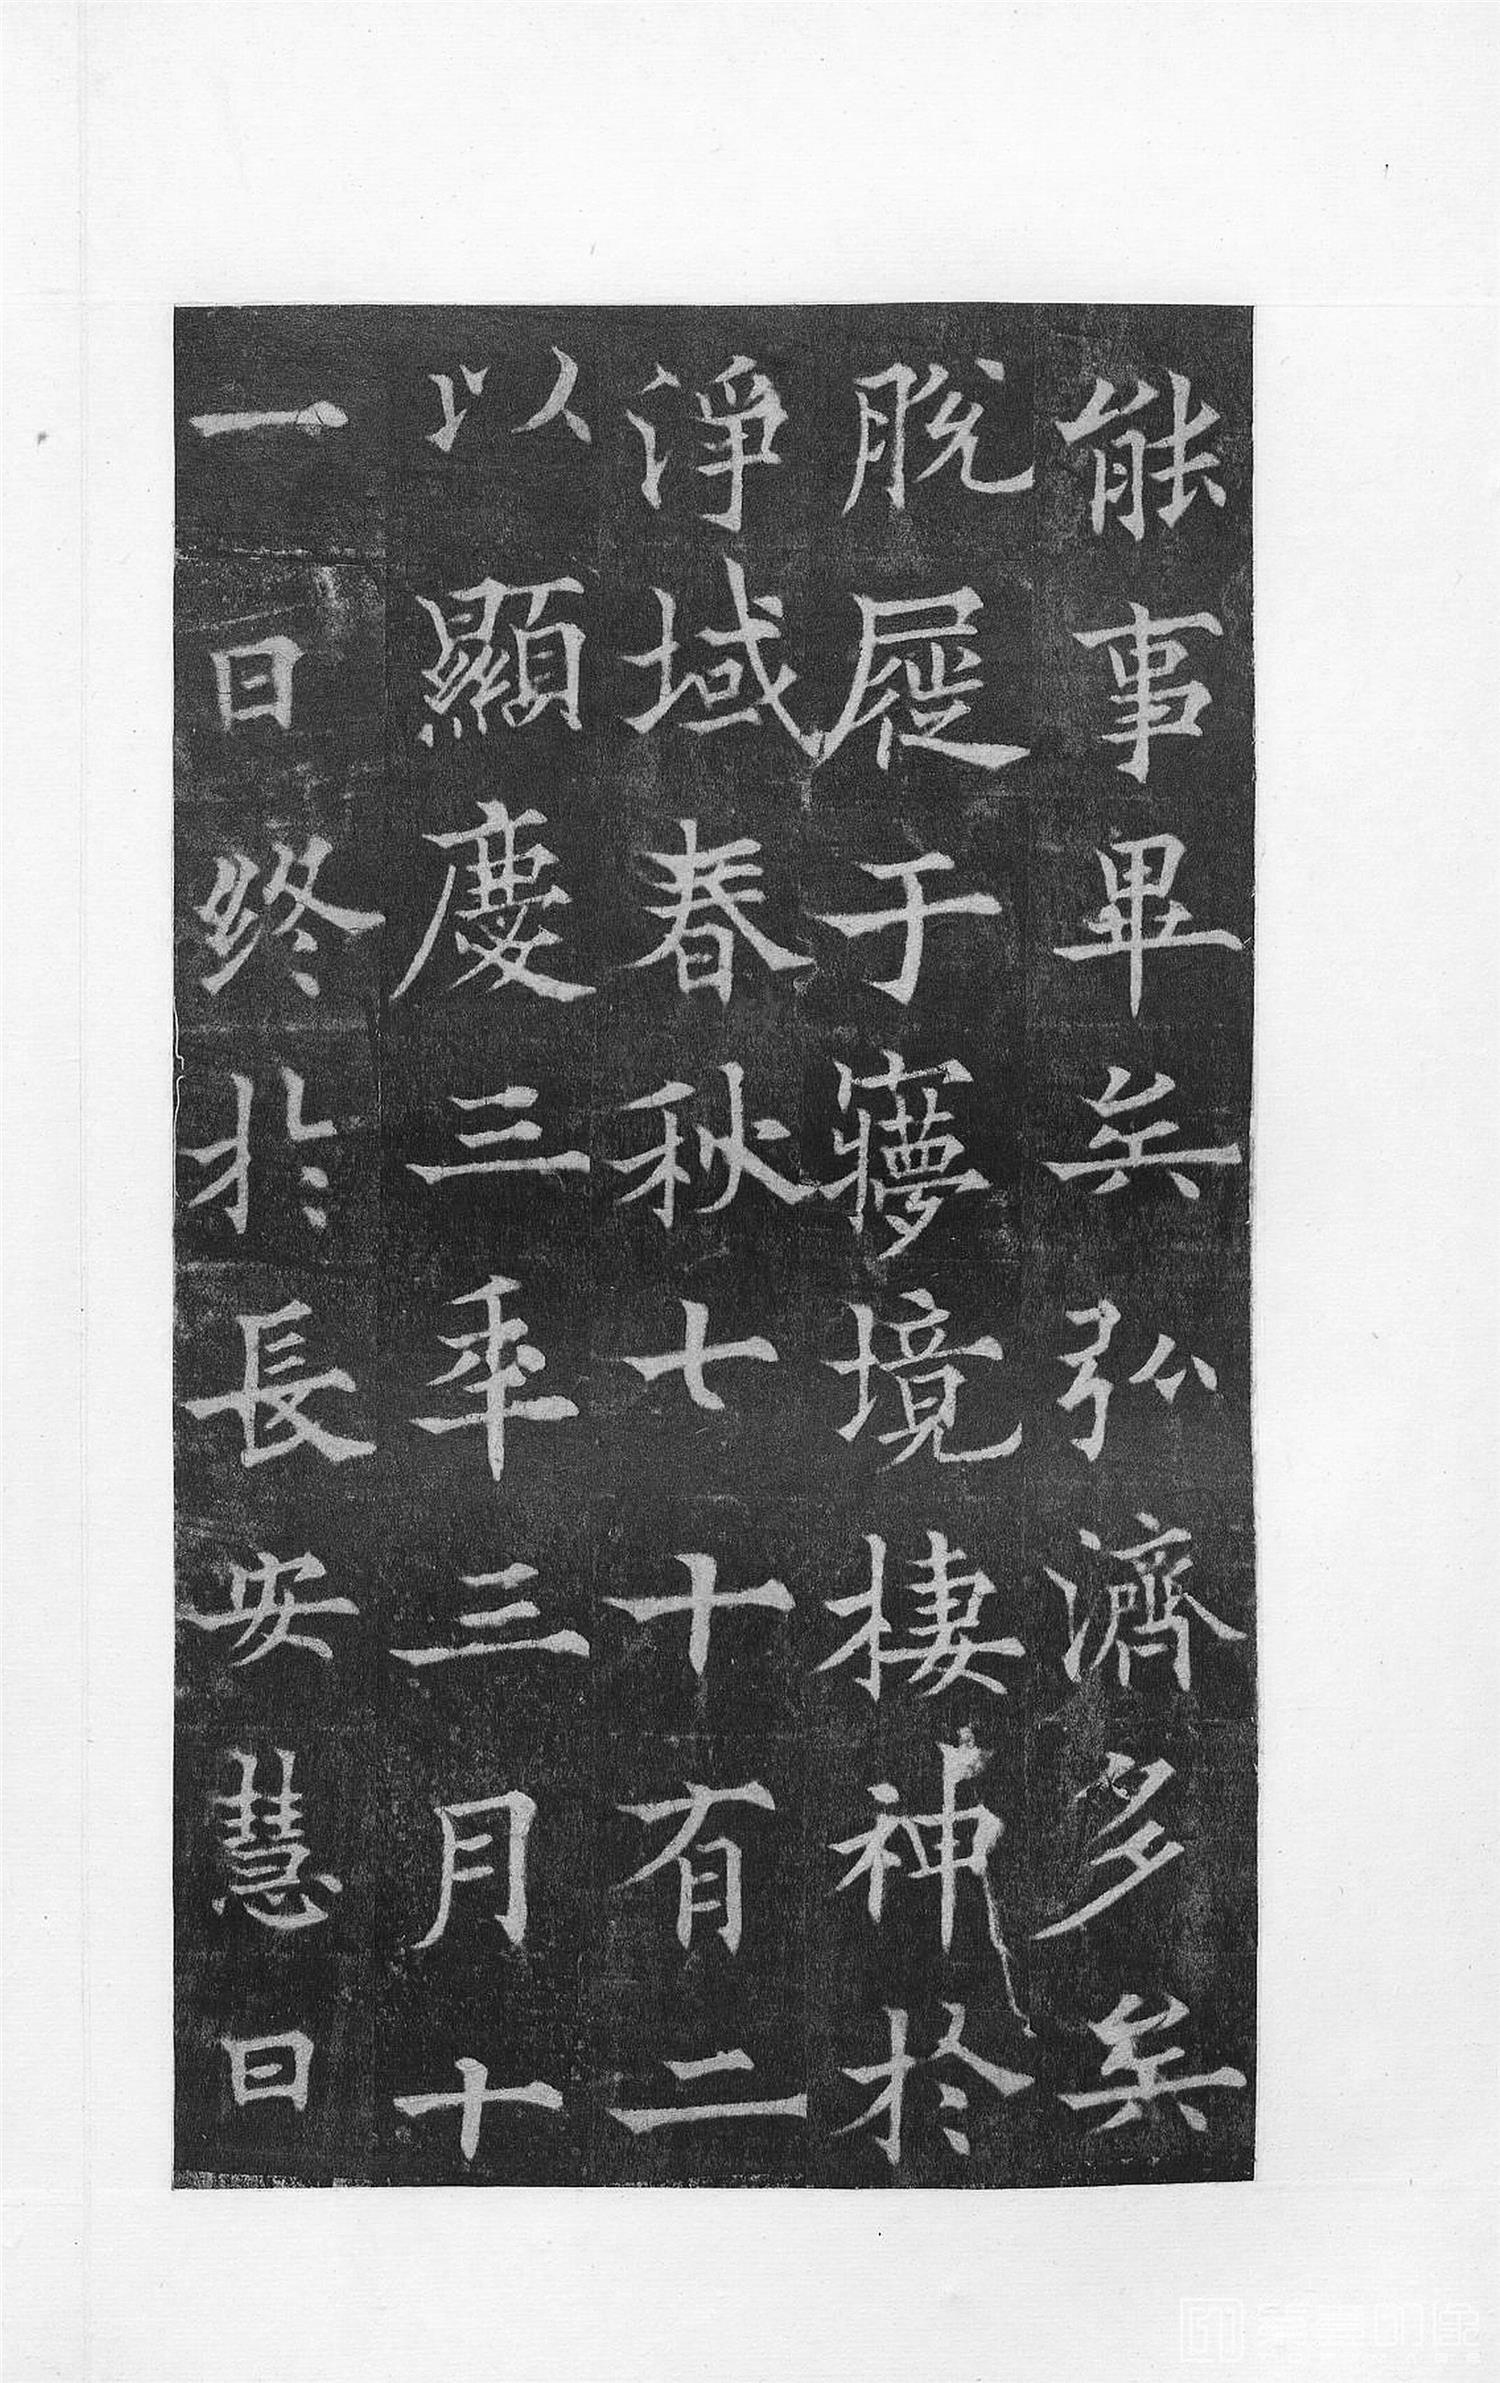 能事畢矣弘濟多矣
脫屣于㝱境棲神於
淨域春秋七十有二
以顯慶三年三月十
一日終於長安慧日